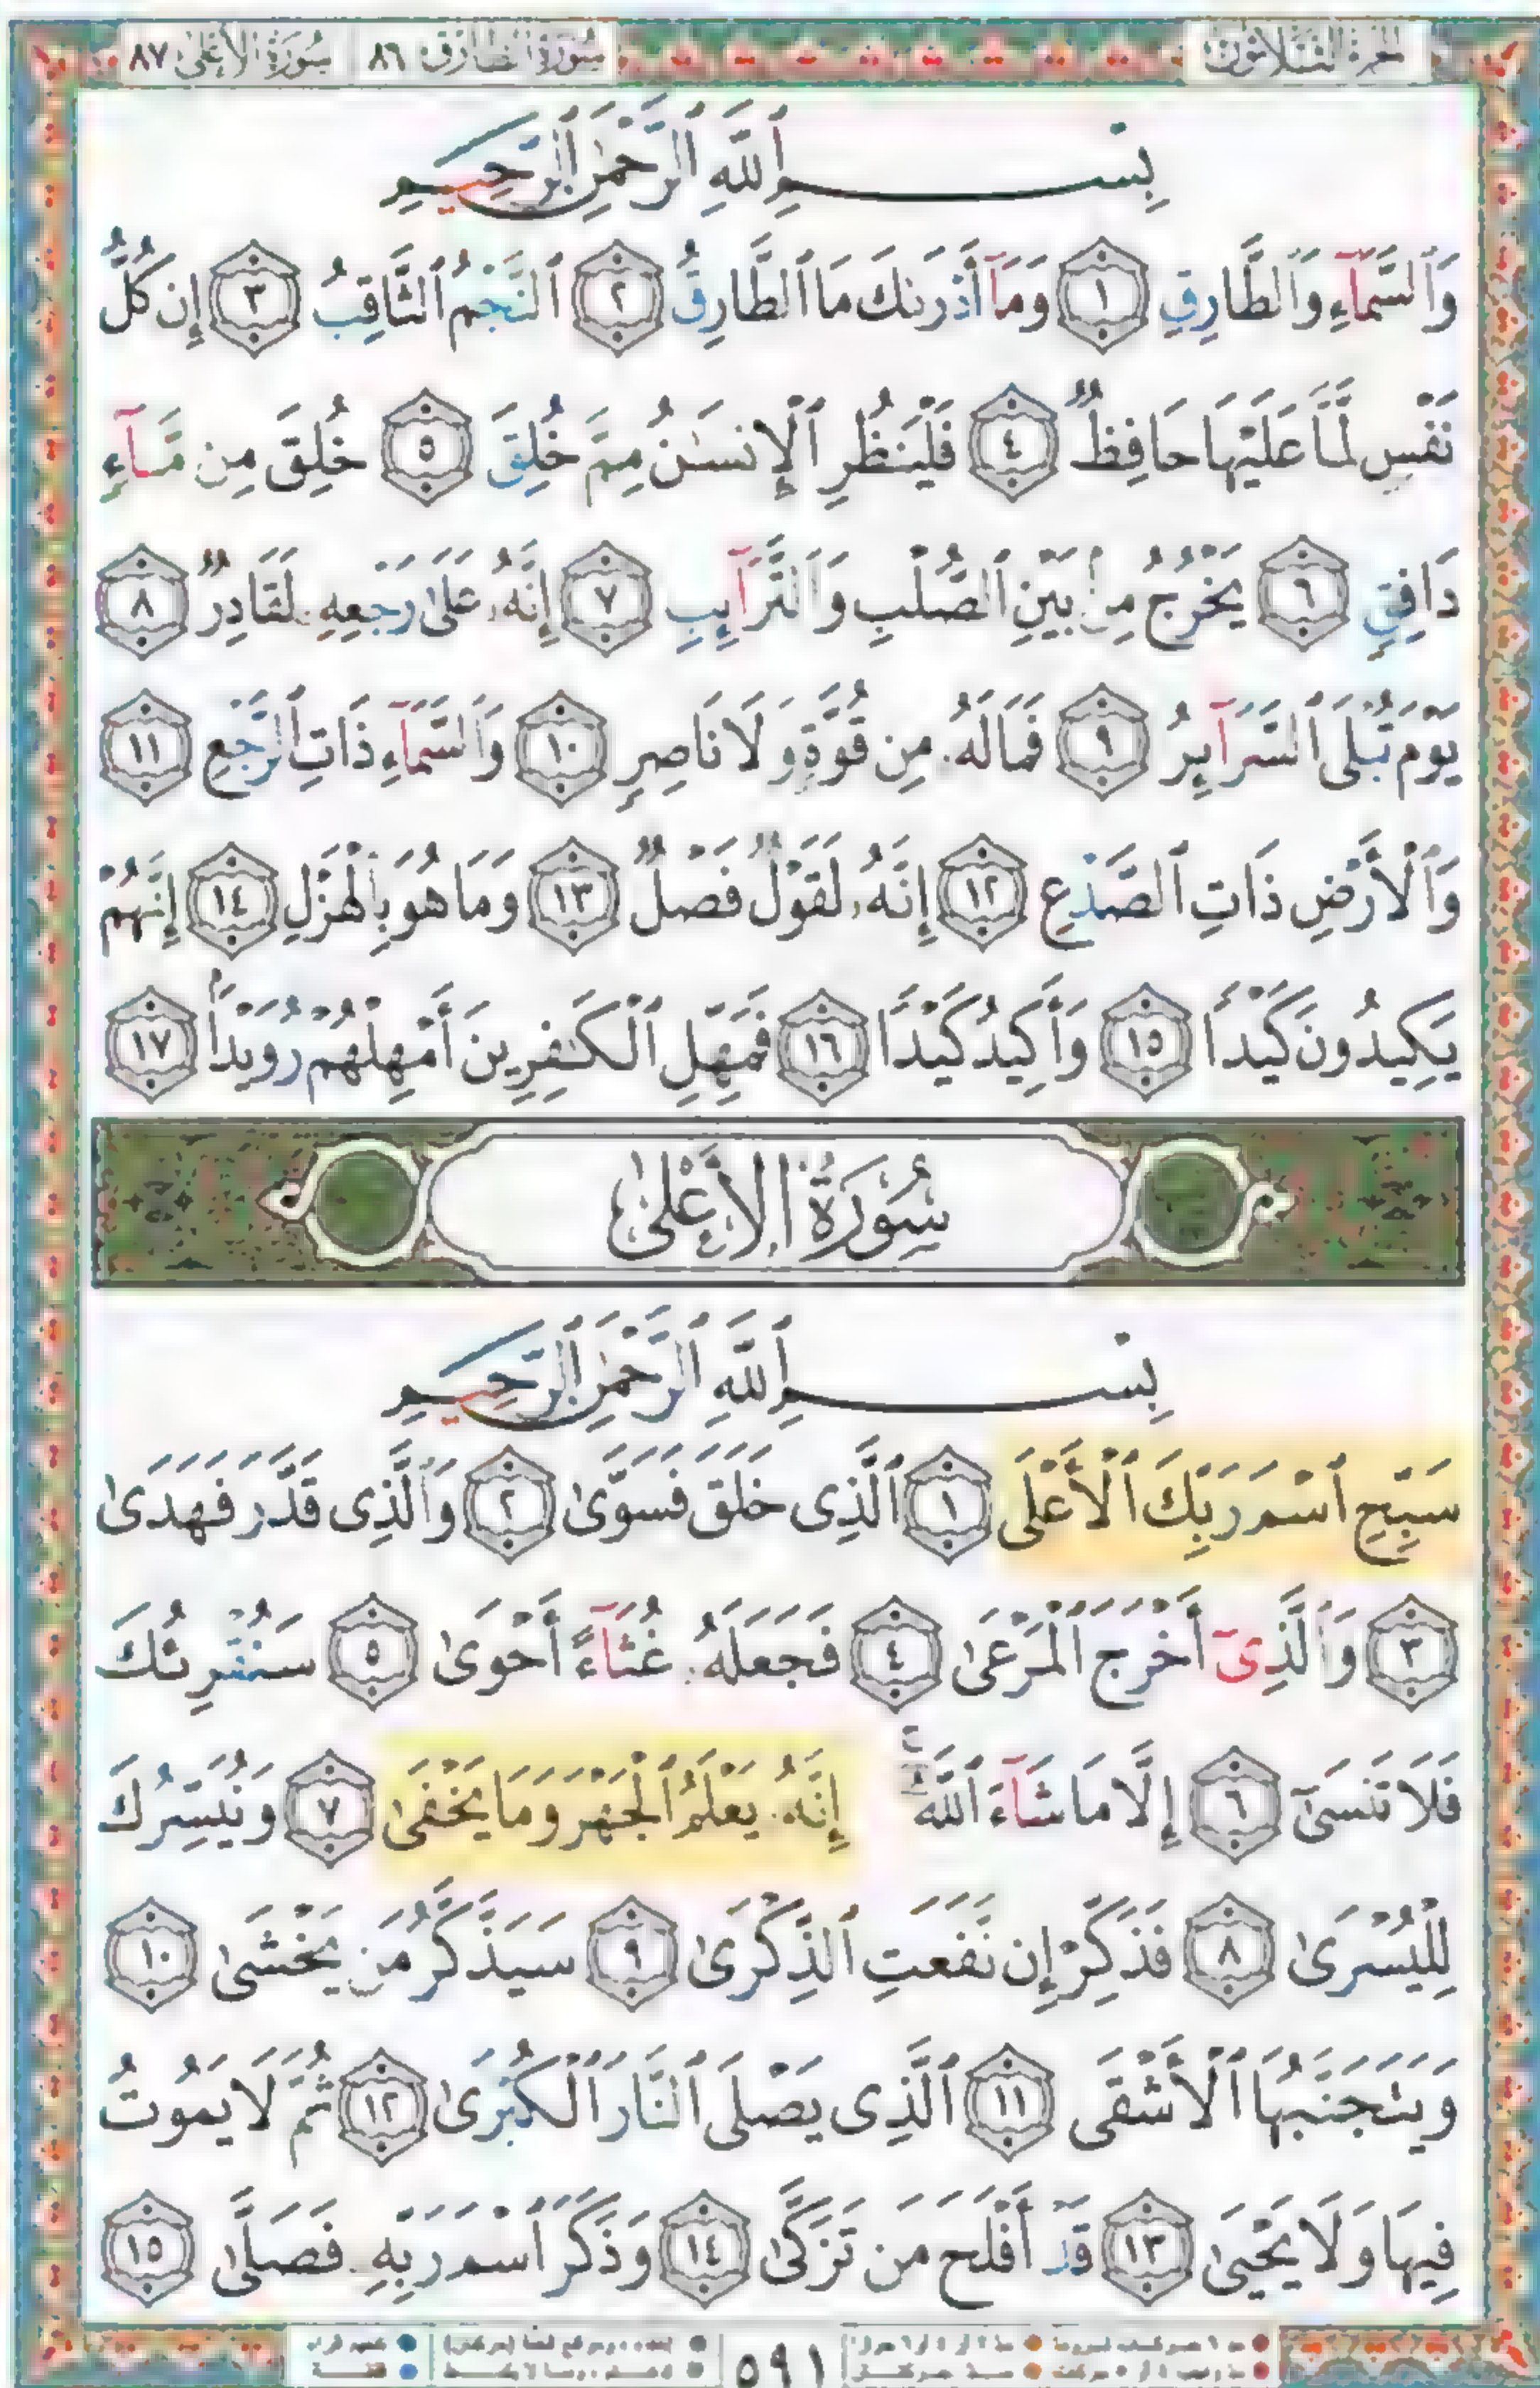 الجزء الثلاثون سورة الطارق ٨٦ سورة الأعلى ٨٧
بِسْمِ ٱللَّهِ ٱلرَّحْمَٰنِ ٱلرَّحِيمِ
وَٱلسَّمَآءِ وَٱلطَّارِقِ ١ وَمَآ أَدْرَىٰكَ مَا ٱلطَّارِقُ ٢ ٱلنَّجْمُ ٱلثَّاقِبُ ٣ إِن كُلُّ
نَفْسٍ لَّمَّا عَلَيْهَا حَافِظٌ ٤ فَلْيَنظُرِ ٱلْإِنسَٰنُ مِمَّ خُلِقَ ٥ خُلِقَ مِن مَّآءٍ
دَافِقٍ ٦ يَخْرُجُ مِنۢ بَيْنِ ٱلصُّلْبِ وَٱلتَّرَآئِبِ ٧ إِنَّهُۥ عَلَىٰ رَجْعِهِۦ لَقَادِرٌ ٨
يَوْمَ تُبْلَى ٱلسَّرَآئِرُ ٩ فَمَا لَهُۥ مِن قُوَّةٍ وَلَا نَاصِرٍ ١٠ وَٱلسَّمَآءِ ذَاتِ ٱلرَّجْعِ ١١
وَٱلْأَرْضِ ذَاتِ ٱلصَّدْعِ ١٢ إِنَّهُۥ لَقَوْلٌ فَصْلٌ ١٣ وَمَا هُوَ بِٱلْهَزْلِ ١٤ إِنَّهُمْ
يَكِيدُونَ كَيْدًا ١٥ وَأَكِيدُ كَيْدًا ١٦ فَمَهِّلِ ٱلْكَٰفِرِينَ أَمْهِلْهُمْ رُوَيْدًۢا ١٧
سُورَةُ الأَعْلَىٰ
بِسْمِ ٱللَّهِ ٱلرَّحْمَٰنِ ٱلرَّحِيمِ
سَبِّحِ ٱسْمَ رَبِّكَ ٱلْأَعْلَى ١ ٱلَّذِى خَلَقَ فَسَوَّىٰ ٢ وَٱلَّذِى قَدَّرَ فَهَدَىٰ
٣ وَٱلَّذِىٓ أَخْرَجَ ٱلْمَرْعَىٰ ٤ فَجَعَلَهُۥ غُثَآءً أَحْوَىٰ ٥ سَنُقْرِئُكَ
فَلَا تَنسَىٰٓ ٦ إِلَّا مَا شَآءَ ٱللَّهُۚ إِنَّهُۥ يَعْلَمُ ٱلْجَهْرَ وَمَا يَخْفَىٰ ٧ وَنُيَسِّرُكَ
لِلْيُسْرَىٰ ٨ فَذَكِّرْ إِن نَّفَعَتِ ٱلذِّكْرَىٰ ٩ سَيَذَّكَّرُ مَن يَخْشَىٰ ١٠
وَيَتَجَنَّبُهَا ٱلْأَشْقَى ١١ ٱلَّذِى يَصْلَى ٱلنَّارَ ٱلْكُبْرَىٰ ١٢ ثُمَّ لَا يَمُوتُ
فِيهَا وَلَا يَحْيَىٰ ١٣ قَدْ أَفْلَحَ مَن تَزَكَّىٰ ١٤ وَذَكَرَ ٱسْمَ رَبِّهِۦ فَصَلَّىٰ ١٥
٥٩١